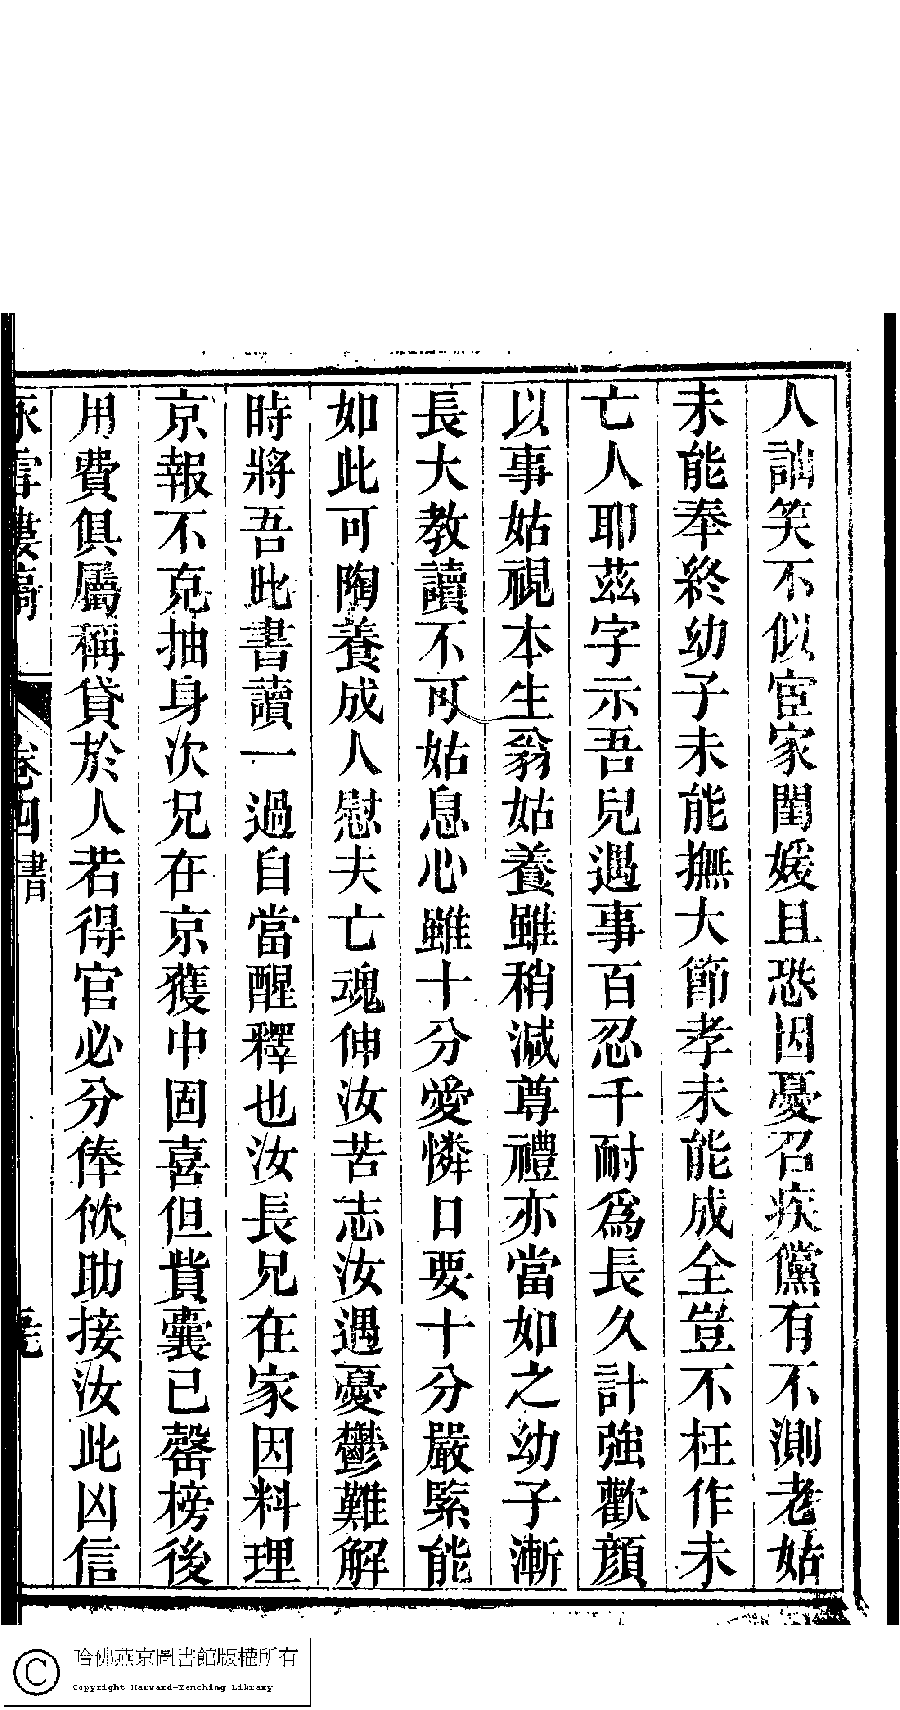 人訕笑不似宦家閨媛且恐因憂召疾儻有不測老姑
未能奉終幼子未能撫大節孝未能成全豈不枉作未
亡人耶茲字示吾兒遇事百忍千耐爲長久計強歡顔
以事姑視本生翁姑養雖稍減尊禮亦當如之幼子漸
長大教讀不可姑息心雖十分愛憐口要十分嚴緊能
如此可陶養成人慰夫亡魂伸汝苦志汝遇憂鬱難解
時將吾此書讀一過自當醒釋也汝長兄在家因料理
京報不克抽身次兄在京獲中固喜但貲囊已罄榜後
用費俱屬稱貸於人若得官必分俸佽助接汝此凶信
雪樓 卷四書
哈佛燕京圖書館版權所有
Copyright Harvard-Yenching Library